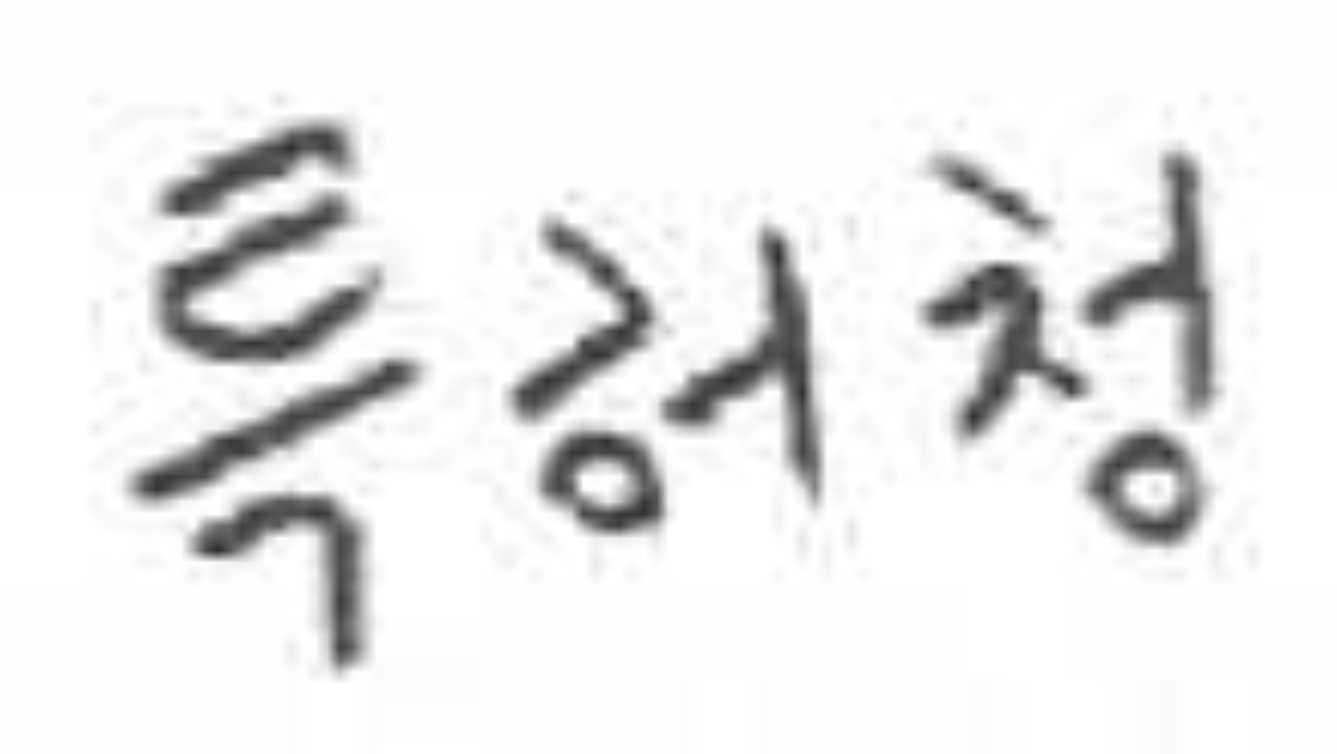 특허청